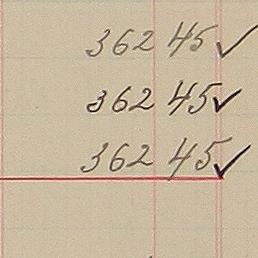 362 45 ✓
362 45 ✓
362 45 ✓